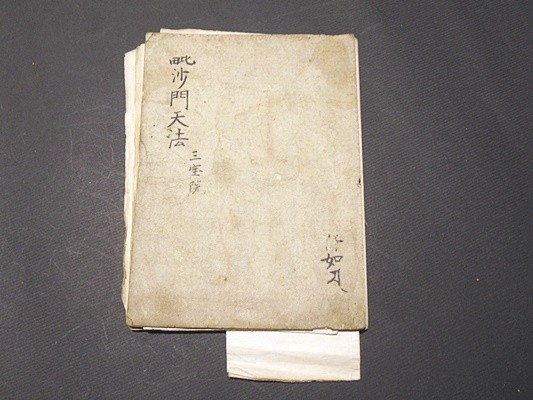 毗沙門天法
三宝院
如